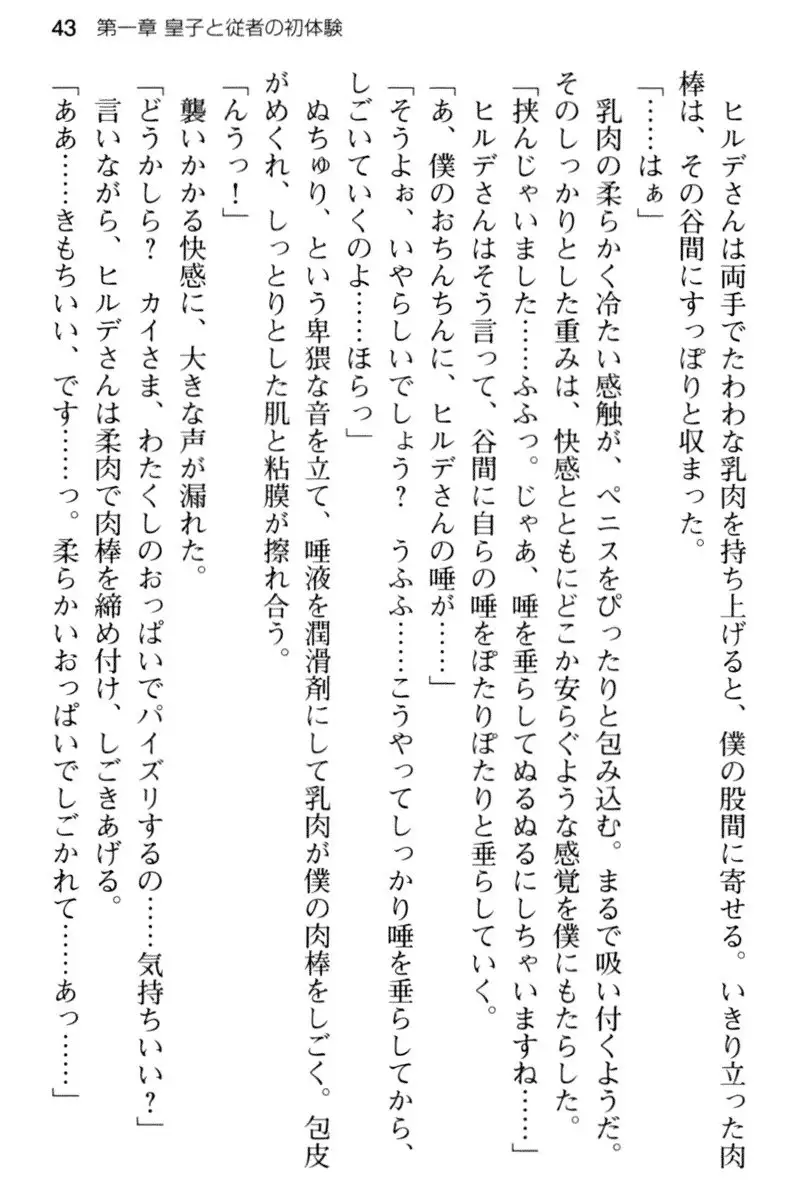 43 第一章 皇子と従者の初体験
ヒルデさんは両手でたわわな乳肉を持ち上げると、僕の股間に寄せる。いきり立った肉
棒は、その谷間にすっぽりと収まった。
「……はぁ」
乳肉の柔らかく冷たい感触が、ペニスをぴったりと包み込む。まるで吸い付くようだ。
そのしっかりとした重みは、快感とともにどこか安らぐような感覚を僕にもたらした。
「挟んじゃいました……ふふっ。じゃあ、唾を垂らしてぬるぬるにしちゃいますね……」
ヒルデさんはそう言って、谷間に自らの唾をぽたりぽたりと垂らしていく。
「あ、僕のおちんちんに、ヒルデさんの唾が……」
「そうよぉ、いやらしいでしょう？　うふふ……こうやってしっかり唾を垂らしてから、
しごいていくのよ……ほらっ」
ぬちゅり、という卑猥な音を立て、唾液を潤滑剤にして乳肉が僕の肉棒をしごく。包皮
がめくれ、しっとりとした肌と粘膜が擦れ合う。
「んうっ！」
襲いかかる快感に、大きな声が漏れた。
「どうかしら？　カイさま、わたくしのおっぱいでパイズリするの……気持ちいい？」
言いながら、ヒルデさんは柔肉で肉棒を締め付け、しごきあげる。
「ああ……きもちいい、です……っ。柔らかいおっぱいでしごかれて……あっ……」